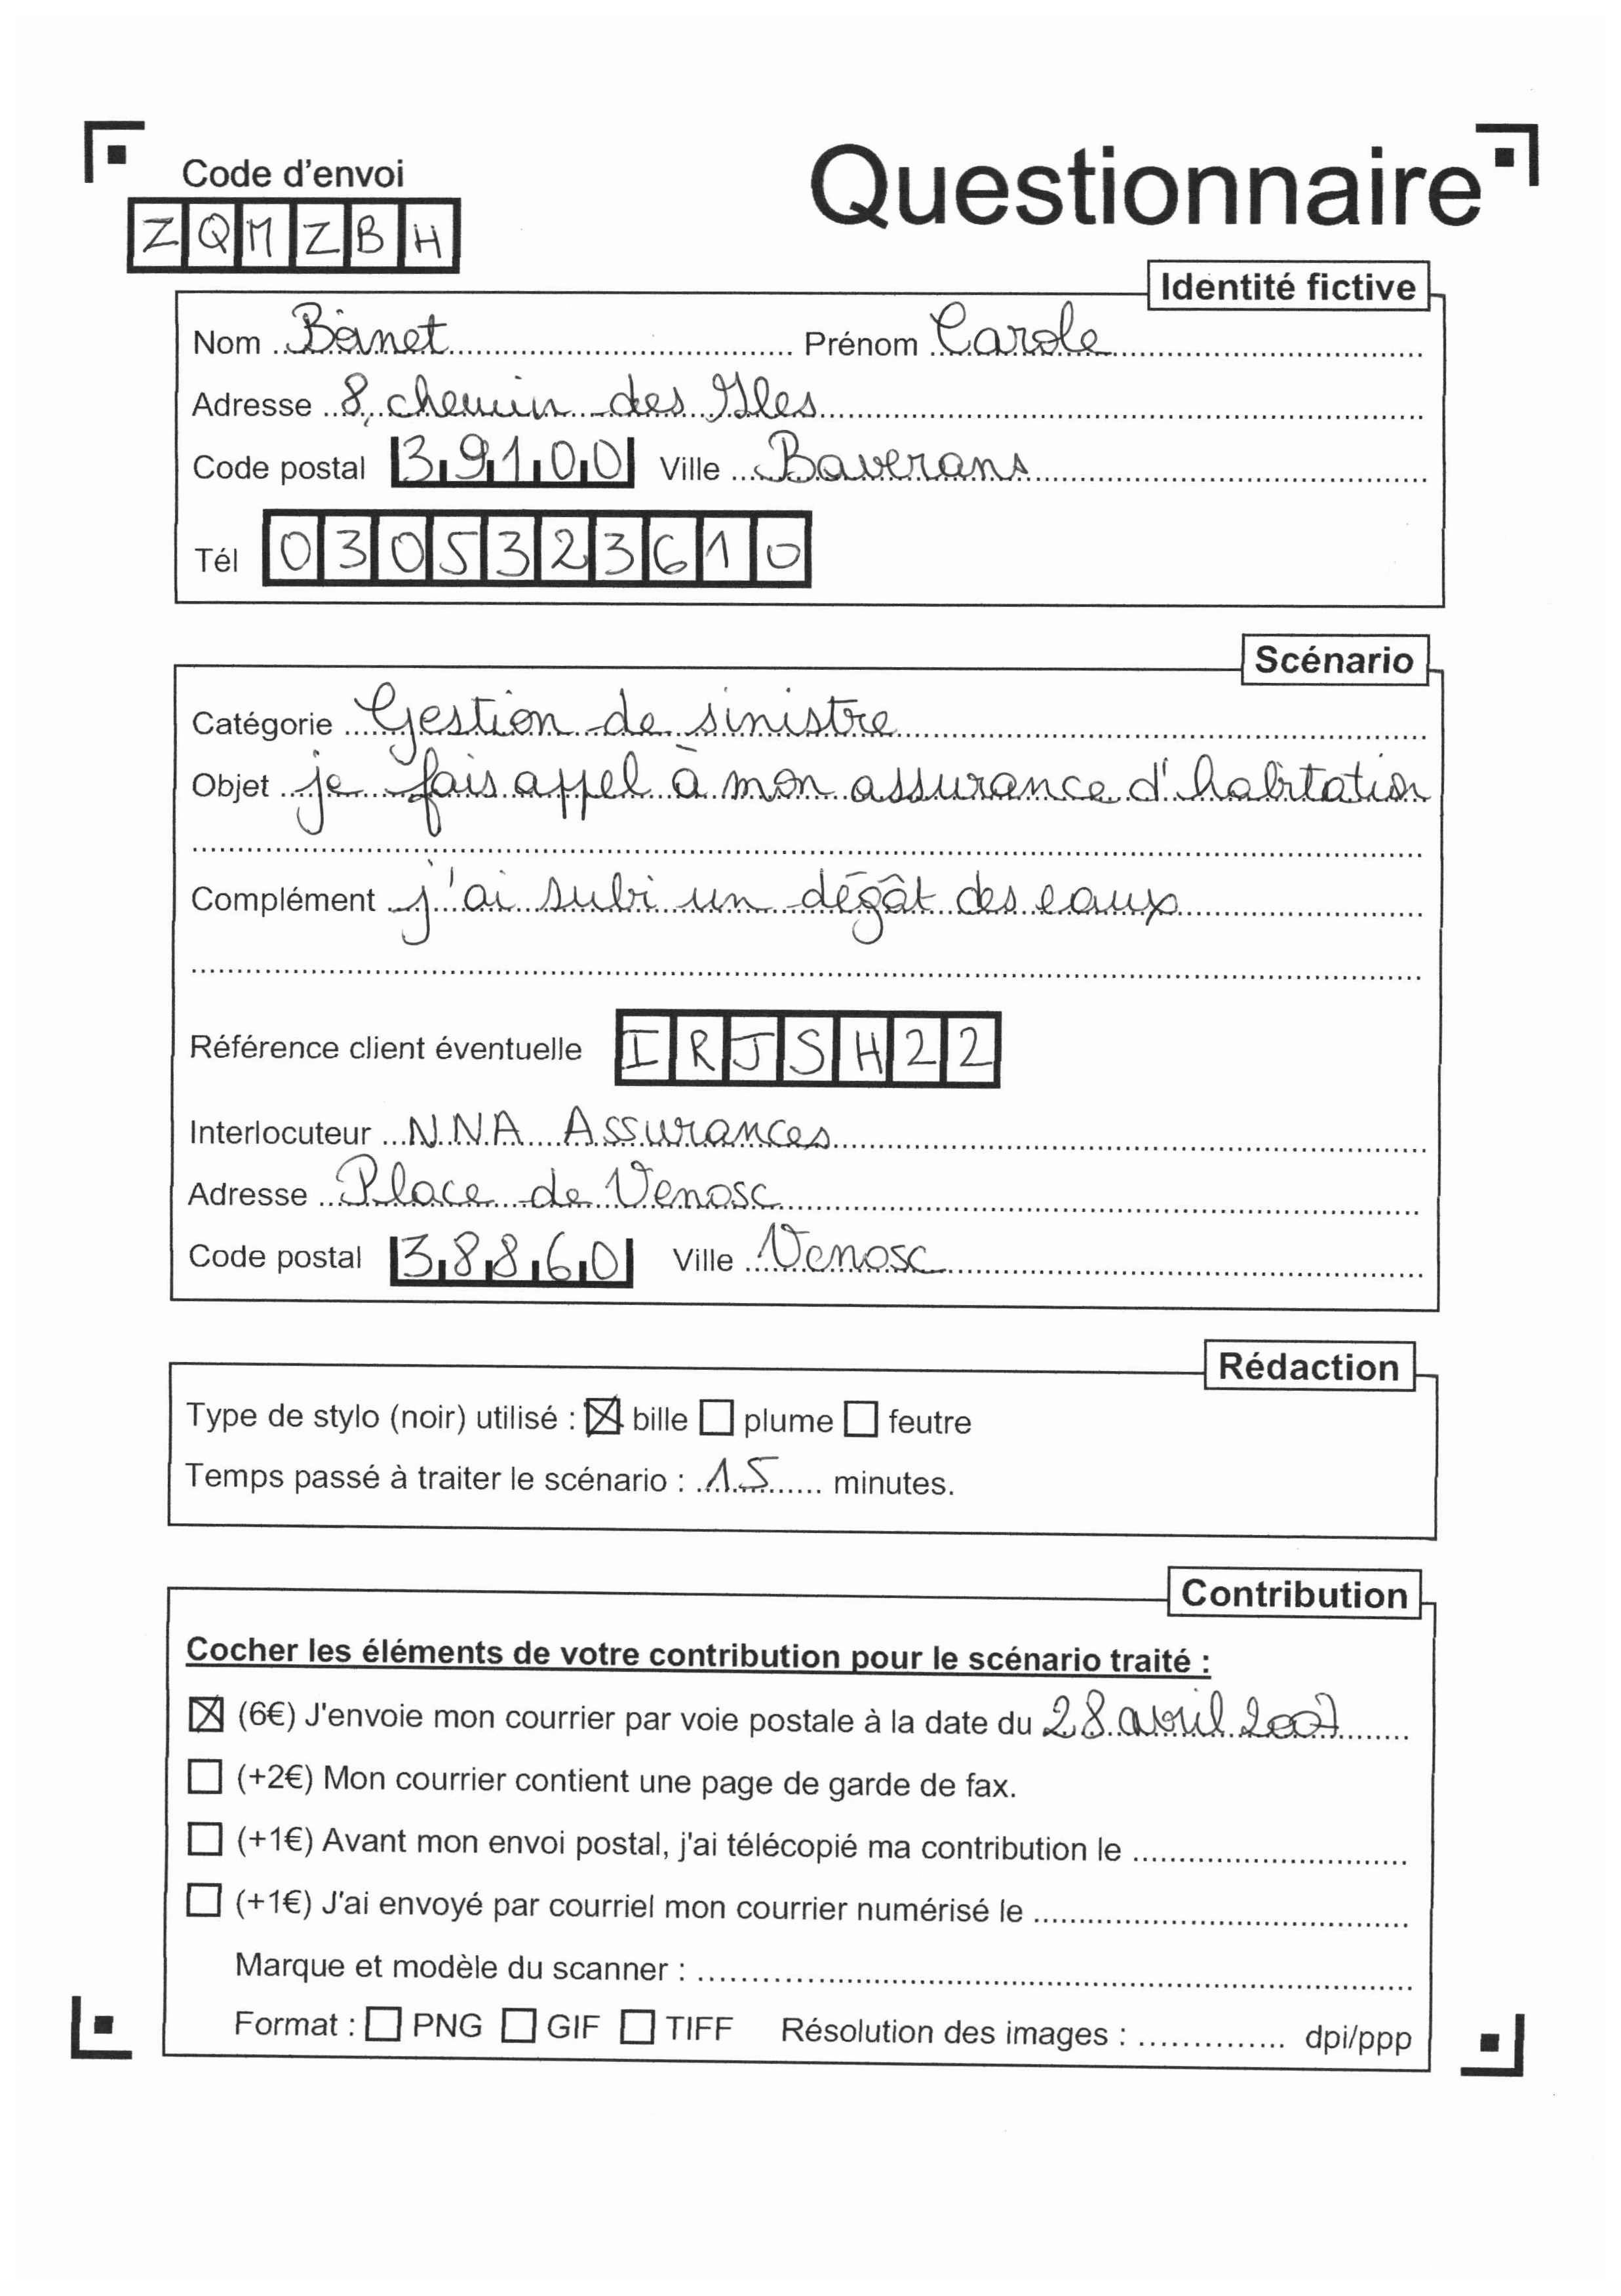 Code d'envoi
Questionnaire
ZQMZBH
Identité fictive
Nom Prénom Carole
Adresse 8, chemin des Iles
Code postal 39100 Ville Baverans
Tél 0305323610
Scénario
Catégorie Gestion de sinistre
Objet je fais appel à mon assurance d'habitation
Complément j'ai subi un dégât des eaux
Référence client éventuelle IRJSH22
Interlocuteur NNA Assurances
Adresse Place de Venosc
Code postal 38860 Ville Venosc
Rédaction
Type de stylo (noir) utilisé : bille plume feutre
Temps passé à traiter le scénario : 15 minutes.
Contribution
Cocher les éléments de votre contribution pour le scénario traité :
(6€) J'envoie mon courrier par voie postale à la date du 28 avril 2007
(+2€) Mon courrier contient une page de garde de fax.
(+1€) Avant mon envoi postal, j'ai télécopié ma contribution le
(+1€) J'ai envoyé par courriel mon courrier numérisé le
Marque et modèle du scanner :
Format : PNG GIF TIFF Résolution des images : dpi/ppp